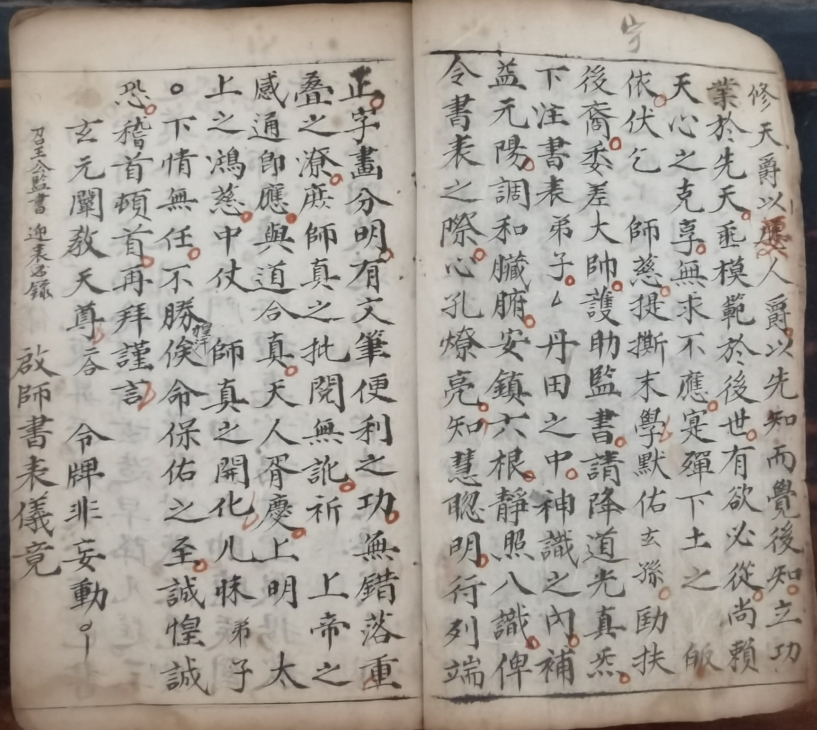 修天爵以要人爵以先知而覺後知立功
業於先天垂模範於後世有欲必從尚賴
天心之克享無求不應寔殫下土之皈
依伏乞 師慈提撕末學默佑玄孫匡扶
後裔委差大帥護助監書請降道光真炁
下注書表弟子厶丹田之中神識之內補
益元陽調和臟腑安鎮六根靜照八識俾
令書表之際心孔燎亮知慧聰明行列端
正字畫分明有文筆便利之功無錯落重
疊之潦庶師真之批閱無訛祈 上帝之
感通即應與道合真天人胥慶上明 太
上之鴻慈中仗 師真之開化凡昧弟子
下情無任不勝俟命保佑之至誠惶誠
恐稽首頓首再拜謹言
玄元闡教天尊 令牌非妄動
召王公監書 迎表名錄
啟師書表儀竟